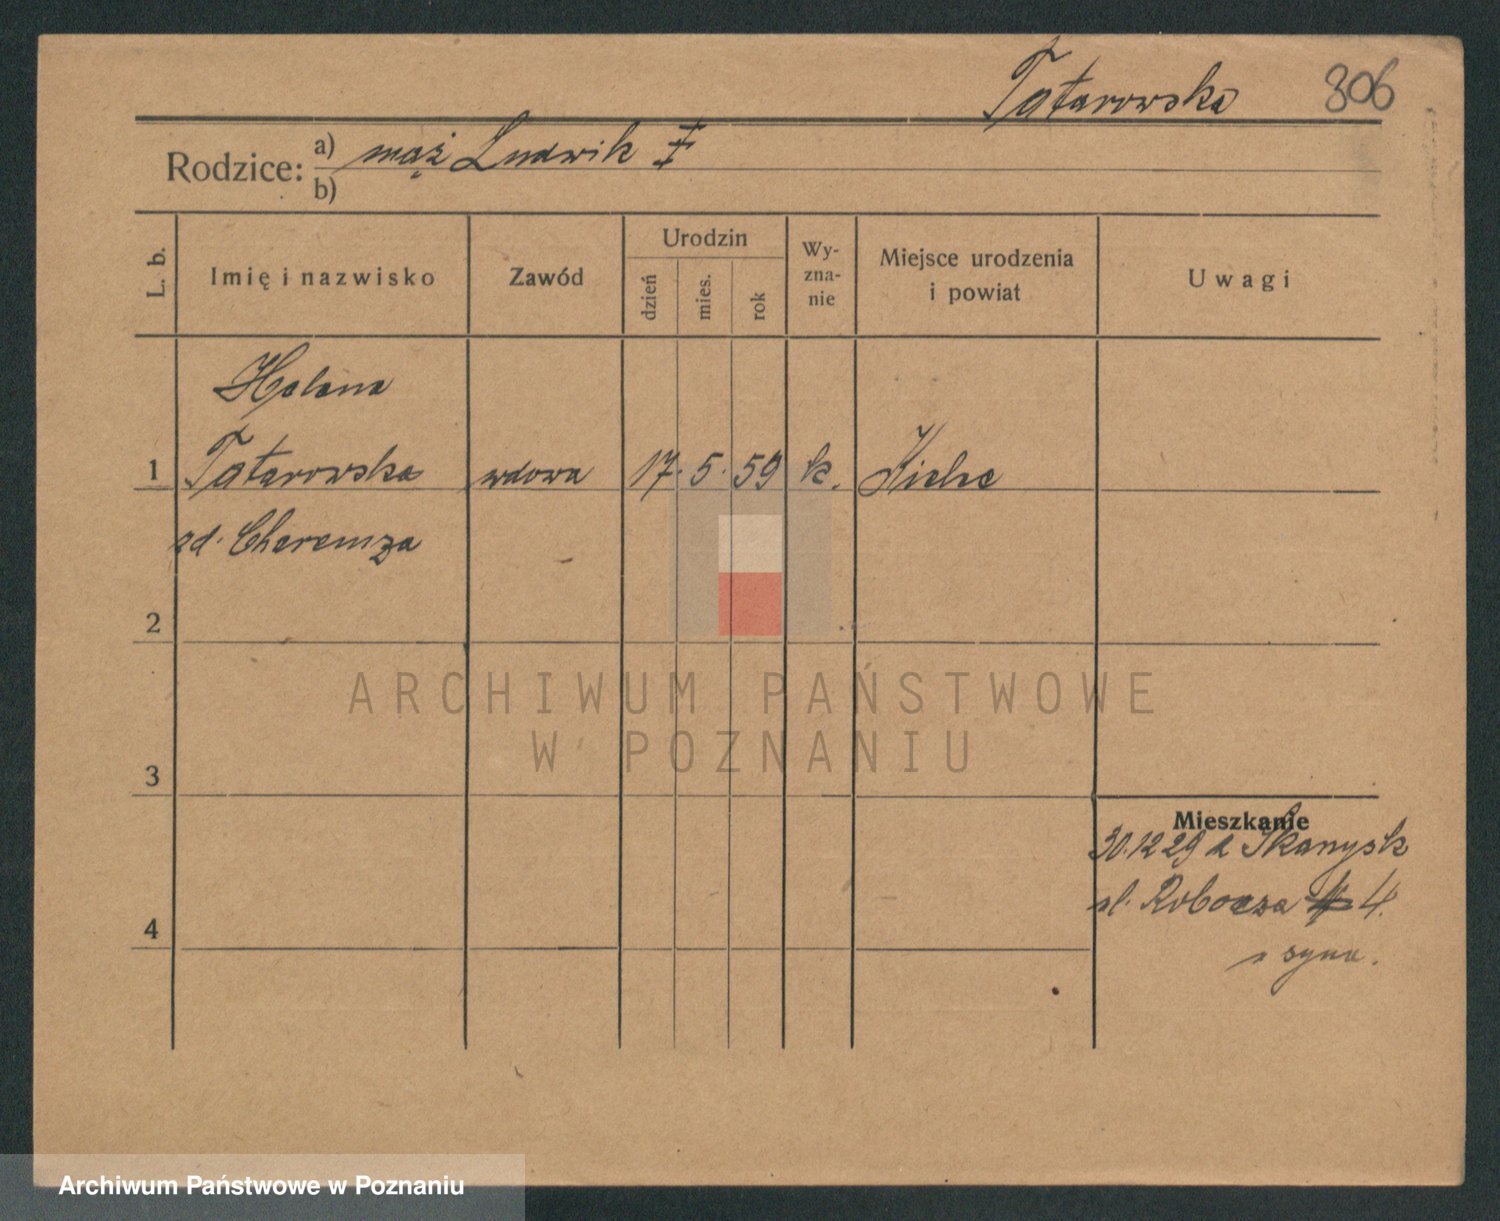 Tatarowska 306
Rodzice: a) mąż Ludwik ‡
b)
L. b.
Imię i nazwisko
Zawód
Urodzin
dzień
mies.
rok
Wy-
zna-
nie
Miejsce urodzenia
i powiat
Uwagi
Helena
1 Tatarowska wdowa 17. 5. 59 k. Kielce
zd. Cheremza
2
ARCHIWUM PAŃSTWOWE
W POZNANIU
3
Mieszkanie
30.12 29 z Skanysk
ul. Robocza 4.
u syna.
4
Archiwum Państwowe w Poznaniu